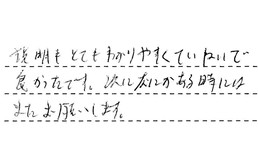 説明もとてもわかりやすくていねいで
良かったです。次に右にかある時には
またお願いします。